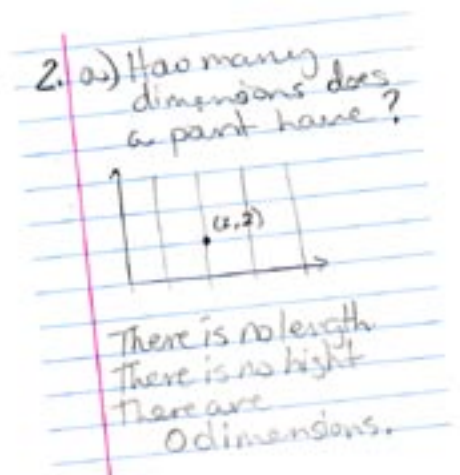 2. a) How many
dimensions does
a point have?
(2,2)
There is no length
There is no hight
There are
0 dimensions.